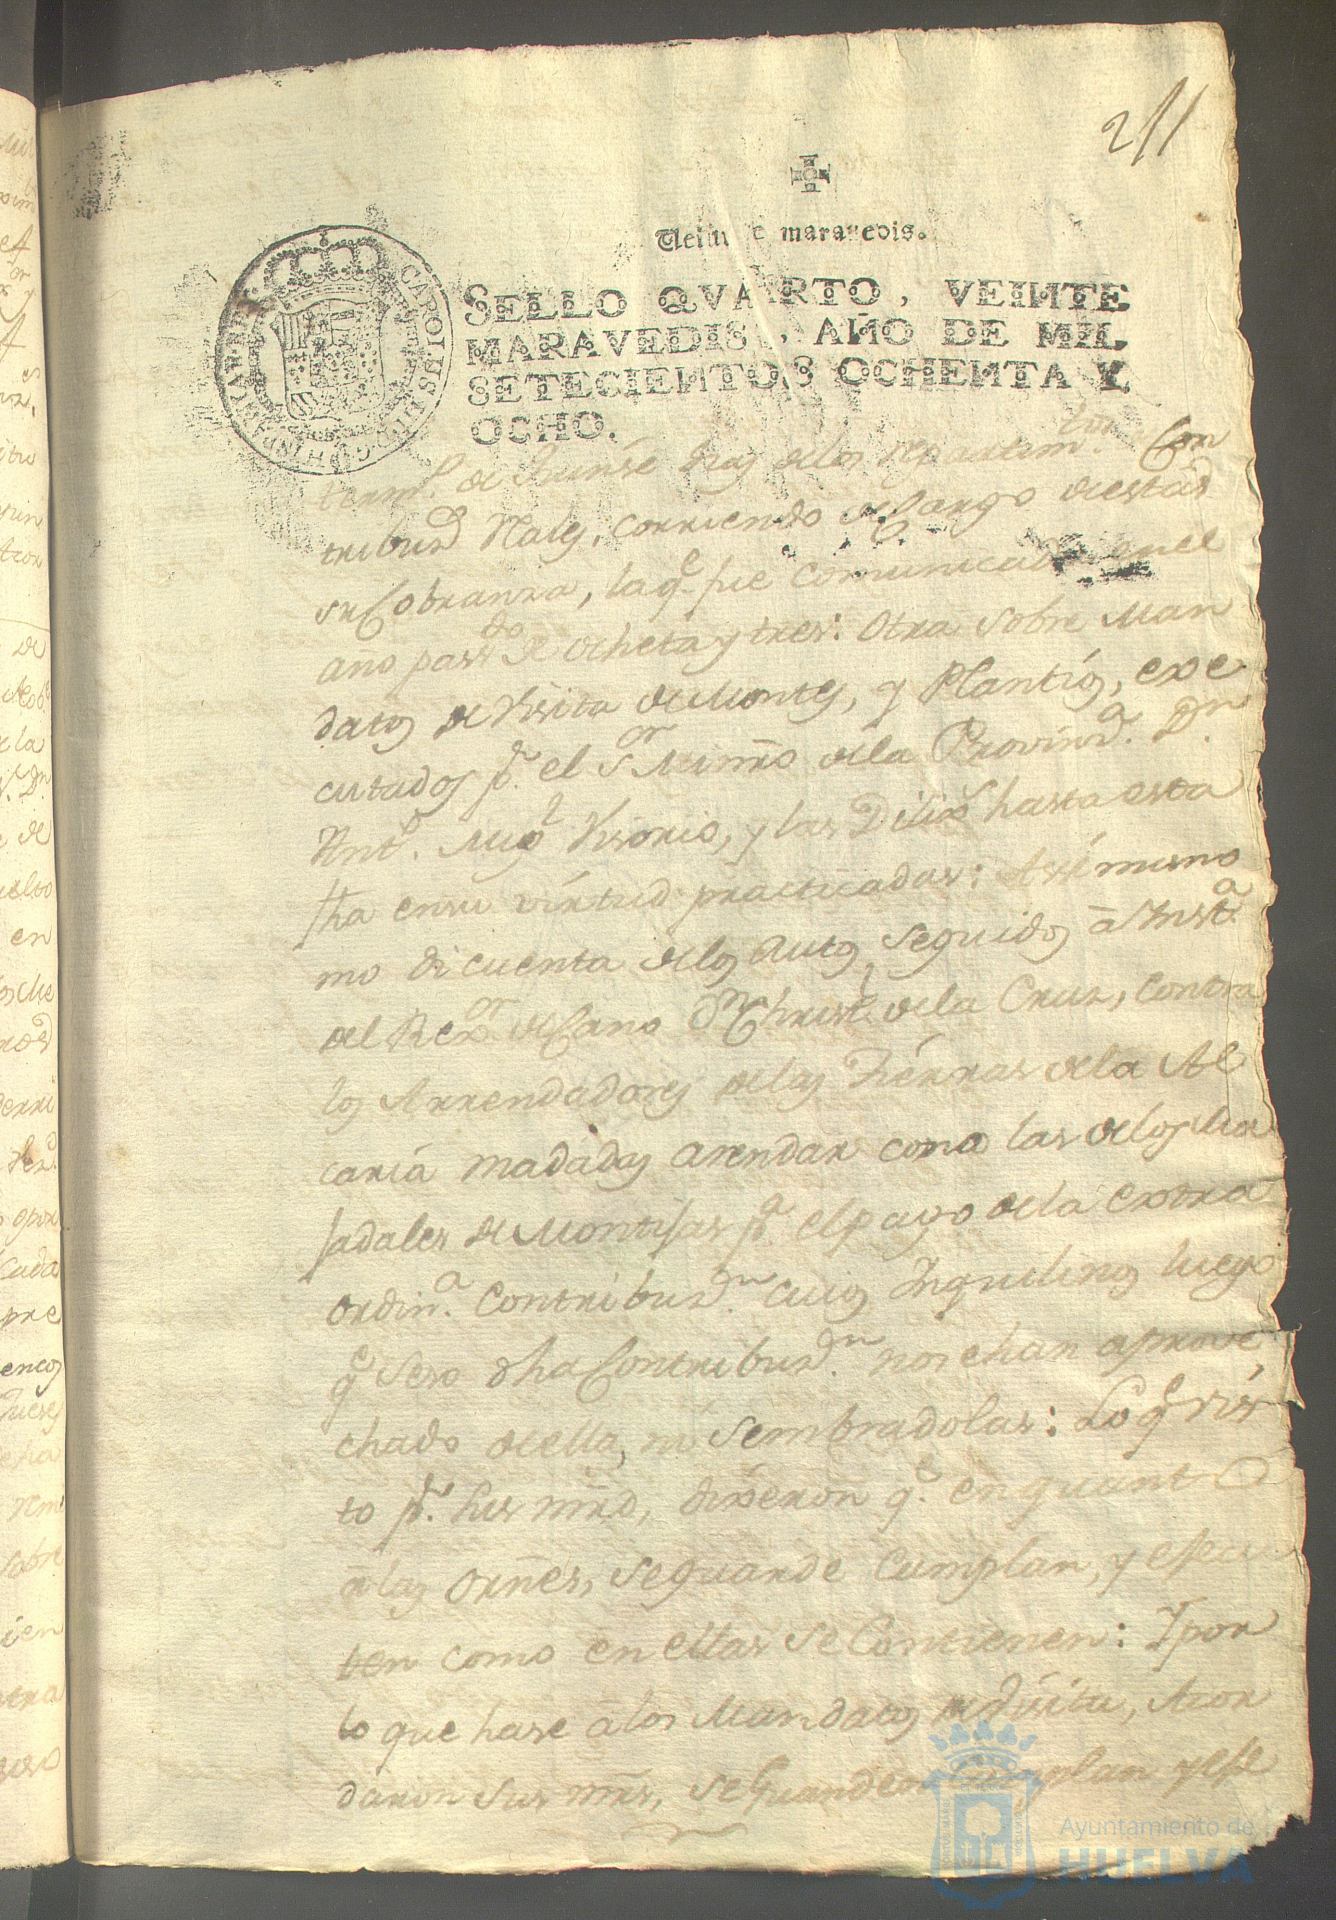 211
Veinte maravedis.
SELLO QVARTO, VEINTE
MARAVEDIS, AÑO DE MIL
SETECIENTOS OCHENTA Y
OCHO.
term.o de quinse dias de los repartim.tos Con
tribuz.s Rales, corriendo a cargo de estas
su Cobranza, la q.e fue comunicada en el
año pass.do de ocheta y tres: Otra sobre Man
datos de Visita de Montes, y Plantíos, exe
cutados p.r el s.or Minrõ de la Provinz.a D.n
Ant.o Mig.l Osorio, y las Dilix.s hasta esta
fha en su virtud practicadas: Assi mismo
mo di cuenta de los Autos seguidos â Inst.a
del Rex.or de Cano D.n Christ.l de la Cruz, contra
los Arrendadores de las Tierras de la Al
caria madadas arendar como las de los
sadales de Montijas p.a el pago de la extra
ordin.a Contribuz.n cuios Inquilinos luego
q.e seso dha Contribuz.n no se han aprove
chado de ella, ni sembradolas: Lo q.e vis
to p.r sus mrd, dixeron q.e en quanto
â las orñes, se guarde cumplan, y efecu
ten como en ellas se Contienen: Y por
lo que hase â los Mandatos de Visita, Acor
daron sus mrs, se Guarden cumplan y efe
Ayuntamiento de
HUELVA